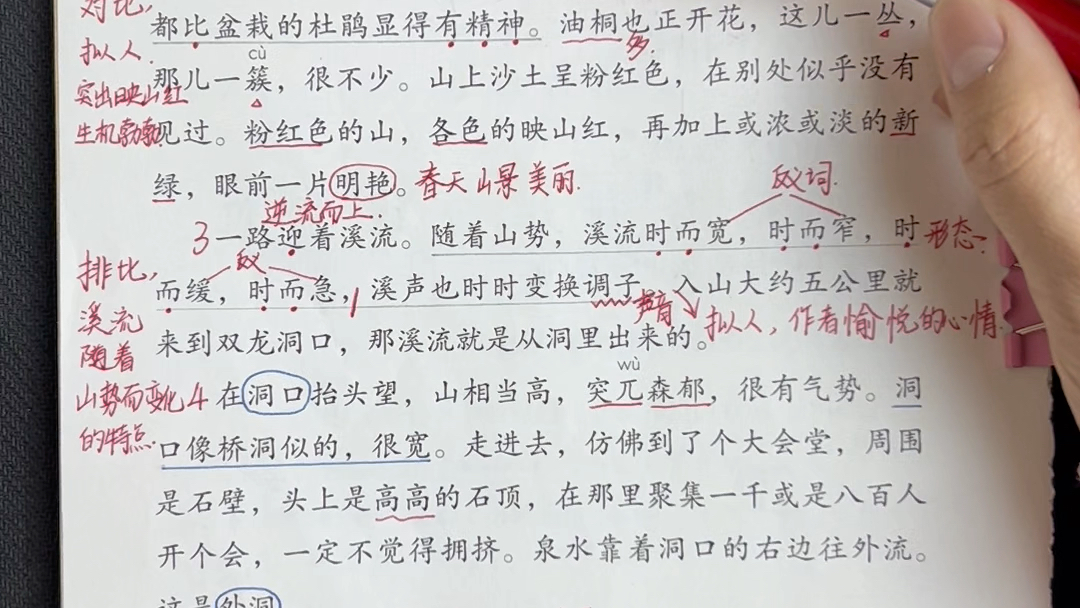 对比，
都比盆栽的杜鹃显得有精神。油桐也正开花，这儿一丛，
拟人.
多.
cù
那儿一簇，很不少。山上沙土呈粉红色，在别处似乎没有
突出映山红
生机勃勃
见过。粉红色的山，各色的映山红，再加上或浓或淡的新
绿，眼前一片明艳。春天山景美丽.
反义词.
逆流而上.
3一路迎着溪流。随着山势，溪流时而宽，时而窄，时
形态
排比，
反
而缓，时而急，溪声也时时变换调子。入山大约五公里就
声音
拟人，作者愉悦的心情.
溪流
来到双龙洞口，那溪流就是从洞里出来的。
随着
wù
山势而变化
4在洞口抬头望，山相当高，突兀森郁，很有气势。洞
的特点.
口像桥洞似的，很宽。走进去，仿佛到了个大会堂，周围
是石壁，头上是高高的石顶，在那里聚集一千或是八百人
开个会，一定不觉得拥挤。泉水靠着洞口的右边往外流。
这是外洞